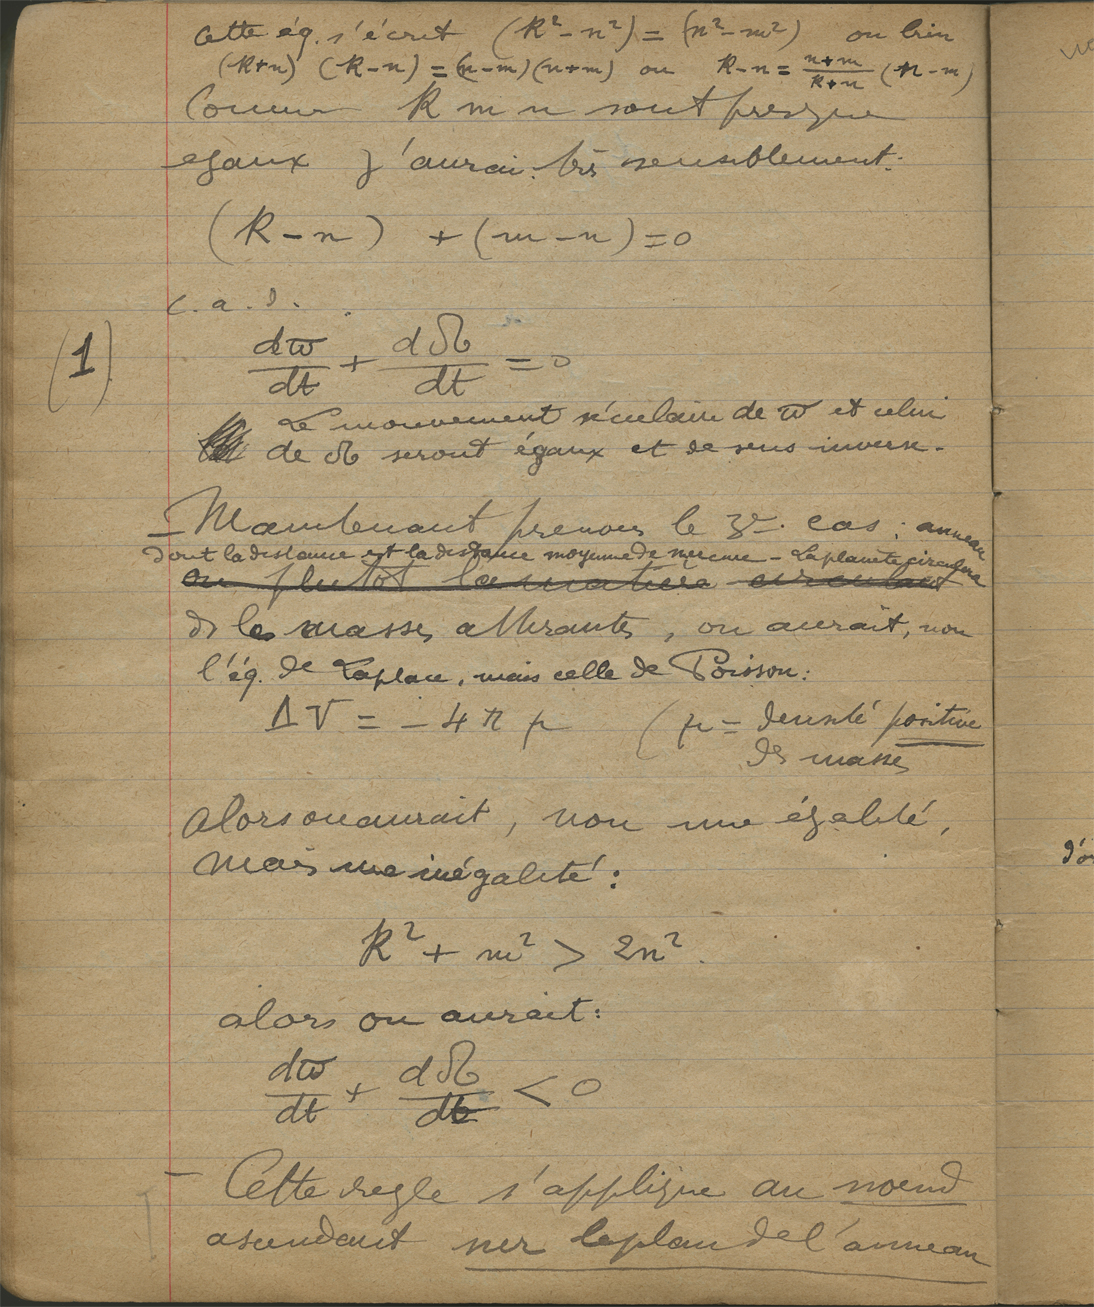 Cette éq. s'écrit (k² – n²) = (n² – m²) ou bien
(k+n) (k–n) = (n–m)(n+m) ou k–n = n+m/k+n (n–m)
Comme k m n sont presque
egaux j'aurai très sensiblement:
(k – n) + (m – n) = 0
c.a.d.
(1) dϖ/dt + d☊/dt = 0
Le mouvement séculaire de ϖ et celui
de ☊ seront égaux et de sens inverse.
– Maintenant prenons le 3e. cas : anneau
dont la distance est la distance moyenne de mercure – La planète circulera
ou plutôt la matière circulant
ds les masses attirantes, on aurait, non
l'éq. de Laplace, mais celle de Poisson:
ΔV = – 4 π μ (μ = densité positive
des masses
alors on aurait, non une égalité,
mais une inégalité :
k² + m² > 2n².
alors on aurait:
dϖ/dt + d☊/dt < 0
– Cette regle s'applique au noeud
ascendant sur le plan de l'anneau
d'o